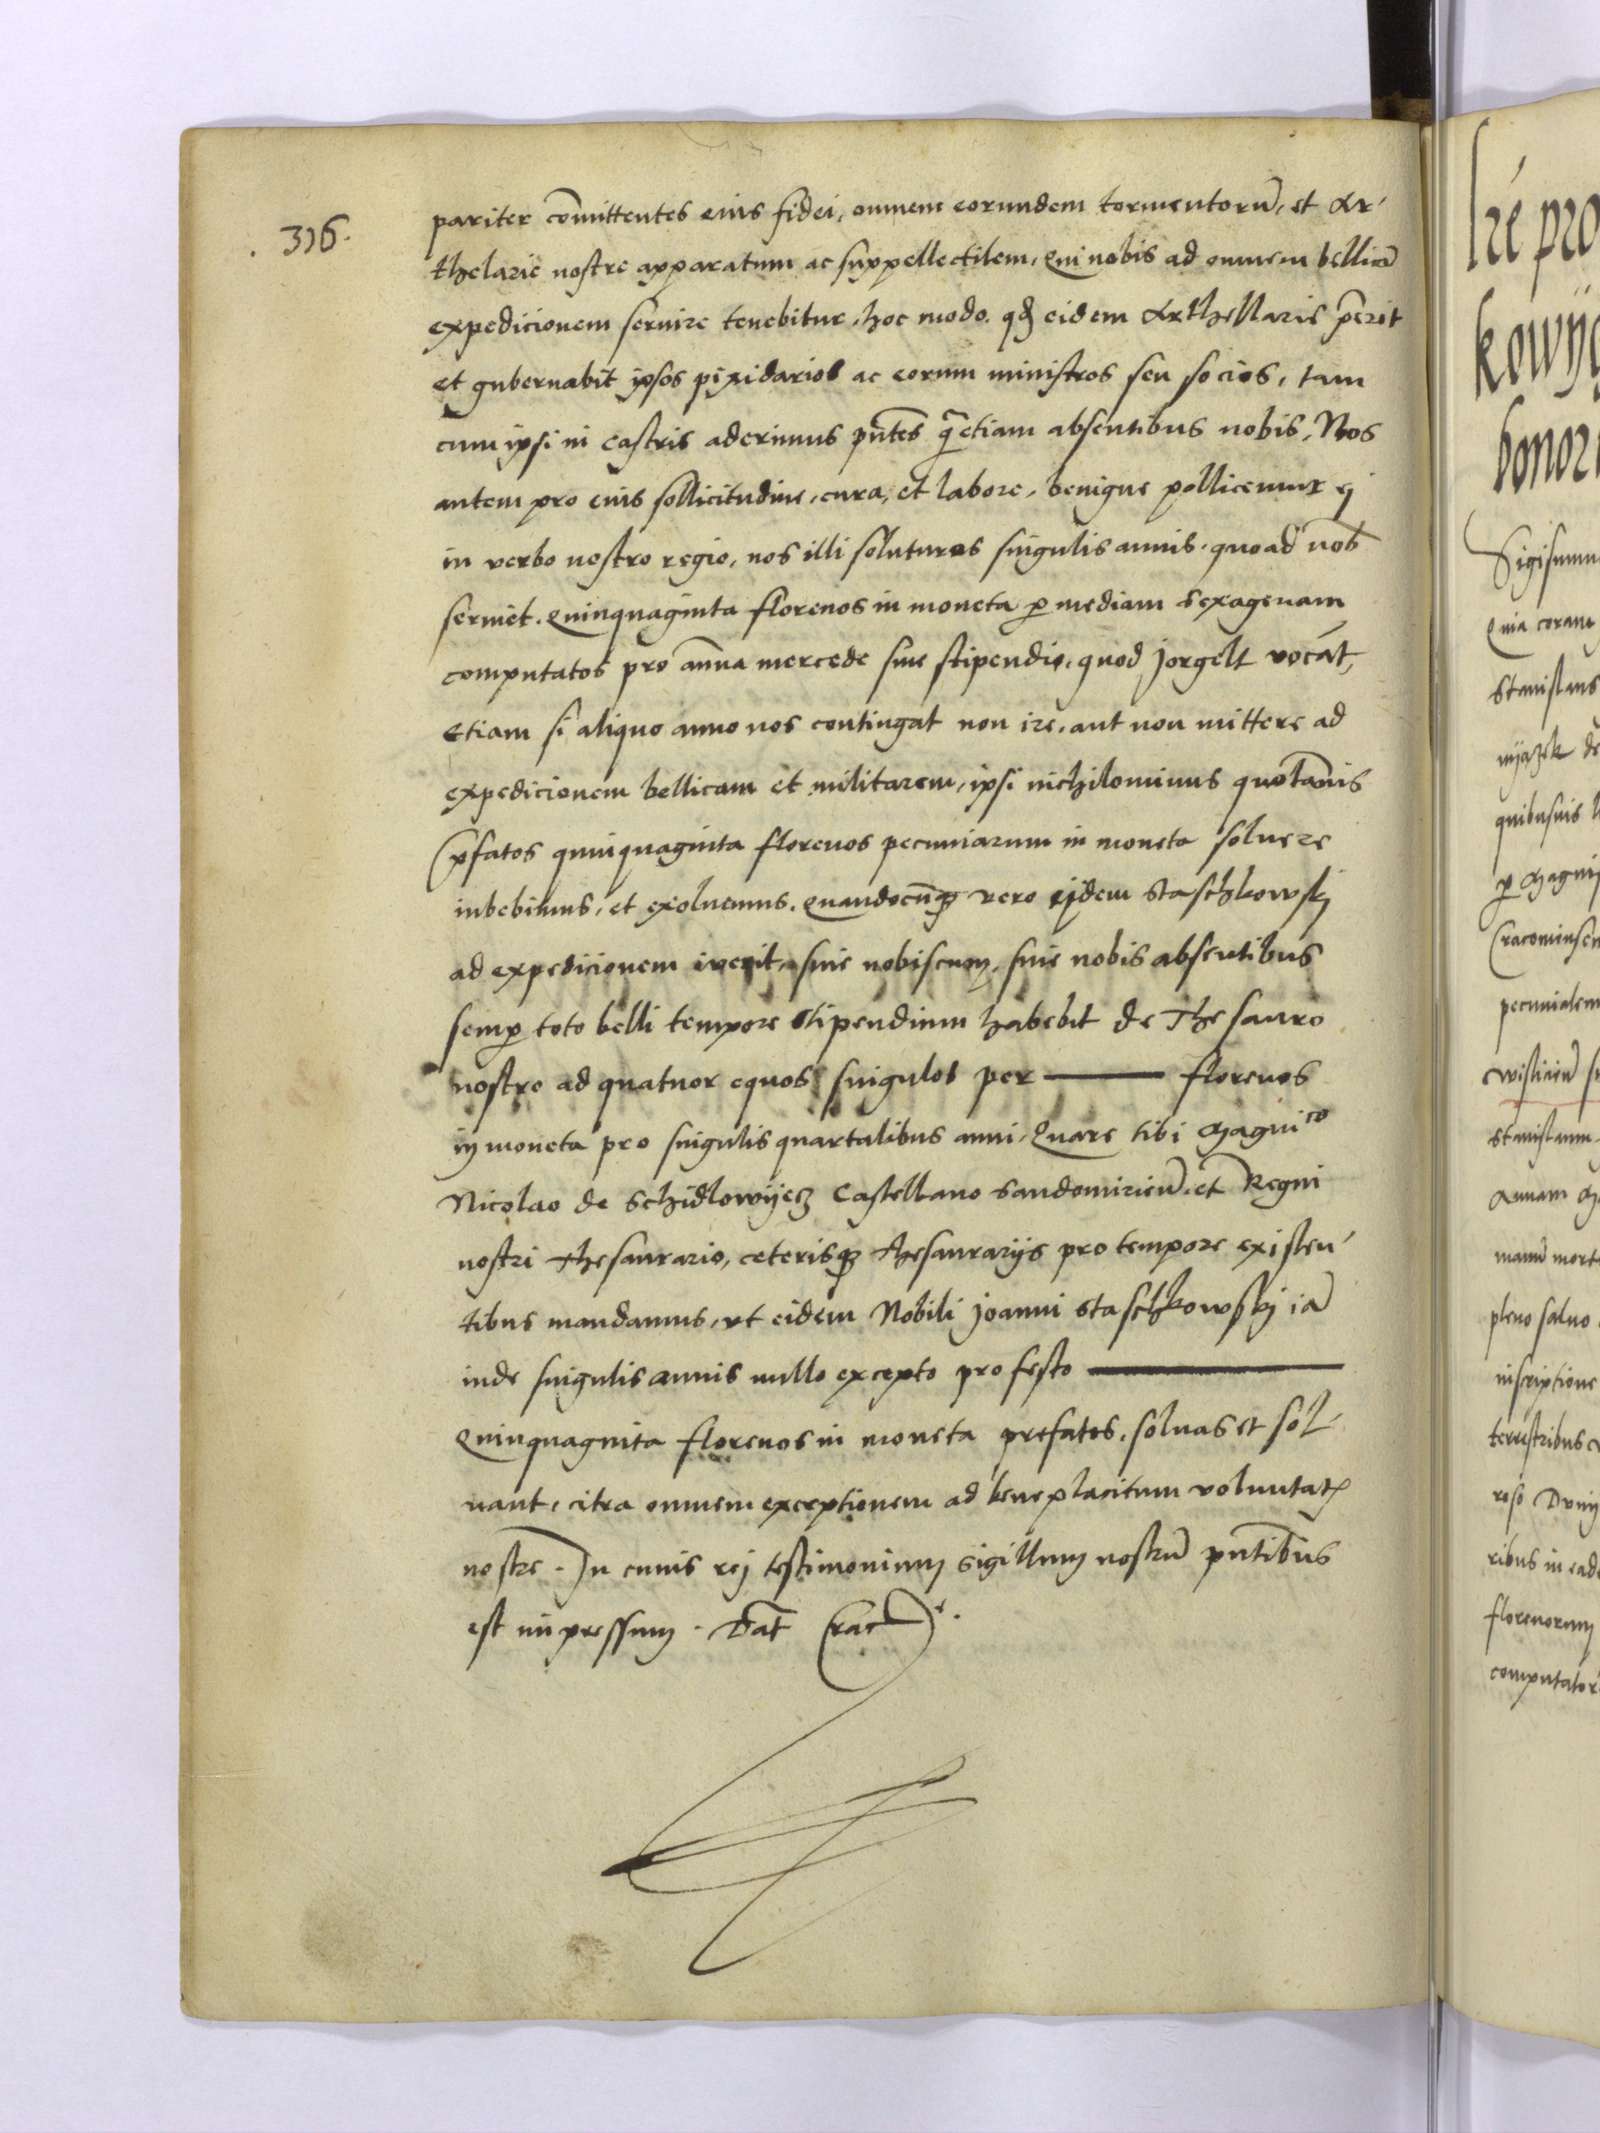 .316.
pariter com̄ittentes eius fidei, omnem eorundem tormentorū, et Ar-
thelarie nostre apparatum ac suppellectilem, Qui nobis ad omnem bellicā
expedicionem seruire tenebitur, hoc modo. qđ eidem Arthellarie p̄erit
et gubernabit ipsos pixidarios ac eorum ministros seu socios, tam
cum ipsi in castris aderimus pn̄tes q̄ etiam absentibus nobis, Nos
autem pro eius sollicitudine, cura, et labore, benigne pollicemur ej
in verbo nostro regio, nos illi soluturos singulis annis, quoad nob̄
seruiet. Quinquaginta florenos in moneta p mediam sexagenam
computatos pro annua mercede siue stipendio, quod jorgelt vocāt,
Etiam si aliquo anno nos contingat non ire, aut non mittere ad
expedicionem bellicam et militarem, ipsi nichilominus quotannis
p̄fatos quinquaginta florenos pecuniarum in moneta soluere
iubebimus, et exoluemus. Quandocūq vero ejdem Staschkowskj
ad expedicionem iuerit, siue nobiscum, siue nobis absentibus
semp toto belli tempore stipendium habebit de Thesauro
nostro ad quatuor equos singulos per ——— florenos
in moneta pro singulis quartalibus anni, Quare tibi Magnico
Nicolao de Schidlowyecz Castellano Sandomirien̄. et Regni
nostri Thesaurario, ceterisq thesaurarijs pro tempore existen-
tibus mandamus, vt eidem Nobili Joanni Staschkowskj iā
inde singulis annis nullo excepto pro festo ———
Quinquaginta florenos in moneta prefatos, soluas et sol-
uant, citra omnem exceptionem ad beneplacitum voluntatꝭ
nostre. In cuius rej testimonium sigillum nostrū pn̄tibus
est impressum. Dat̄ Crac̄.
lrē pro
kowy
honor
Sigismun
Quia coram
Stanislaus
quibusuis
p Magni
Cracouiensen
pecunialem
wisliciē
Stanislaum
Annam
manū mort
pleno saluo
inscriptione
terrestribus
ribus in ead
florenorum
computator